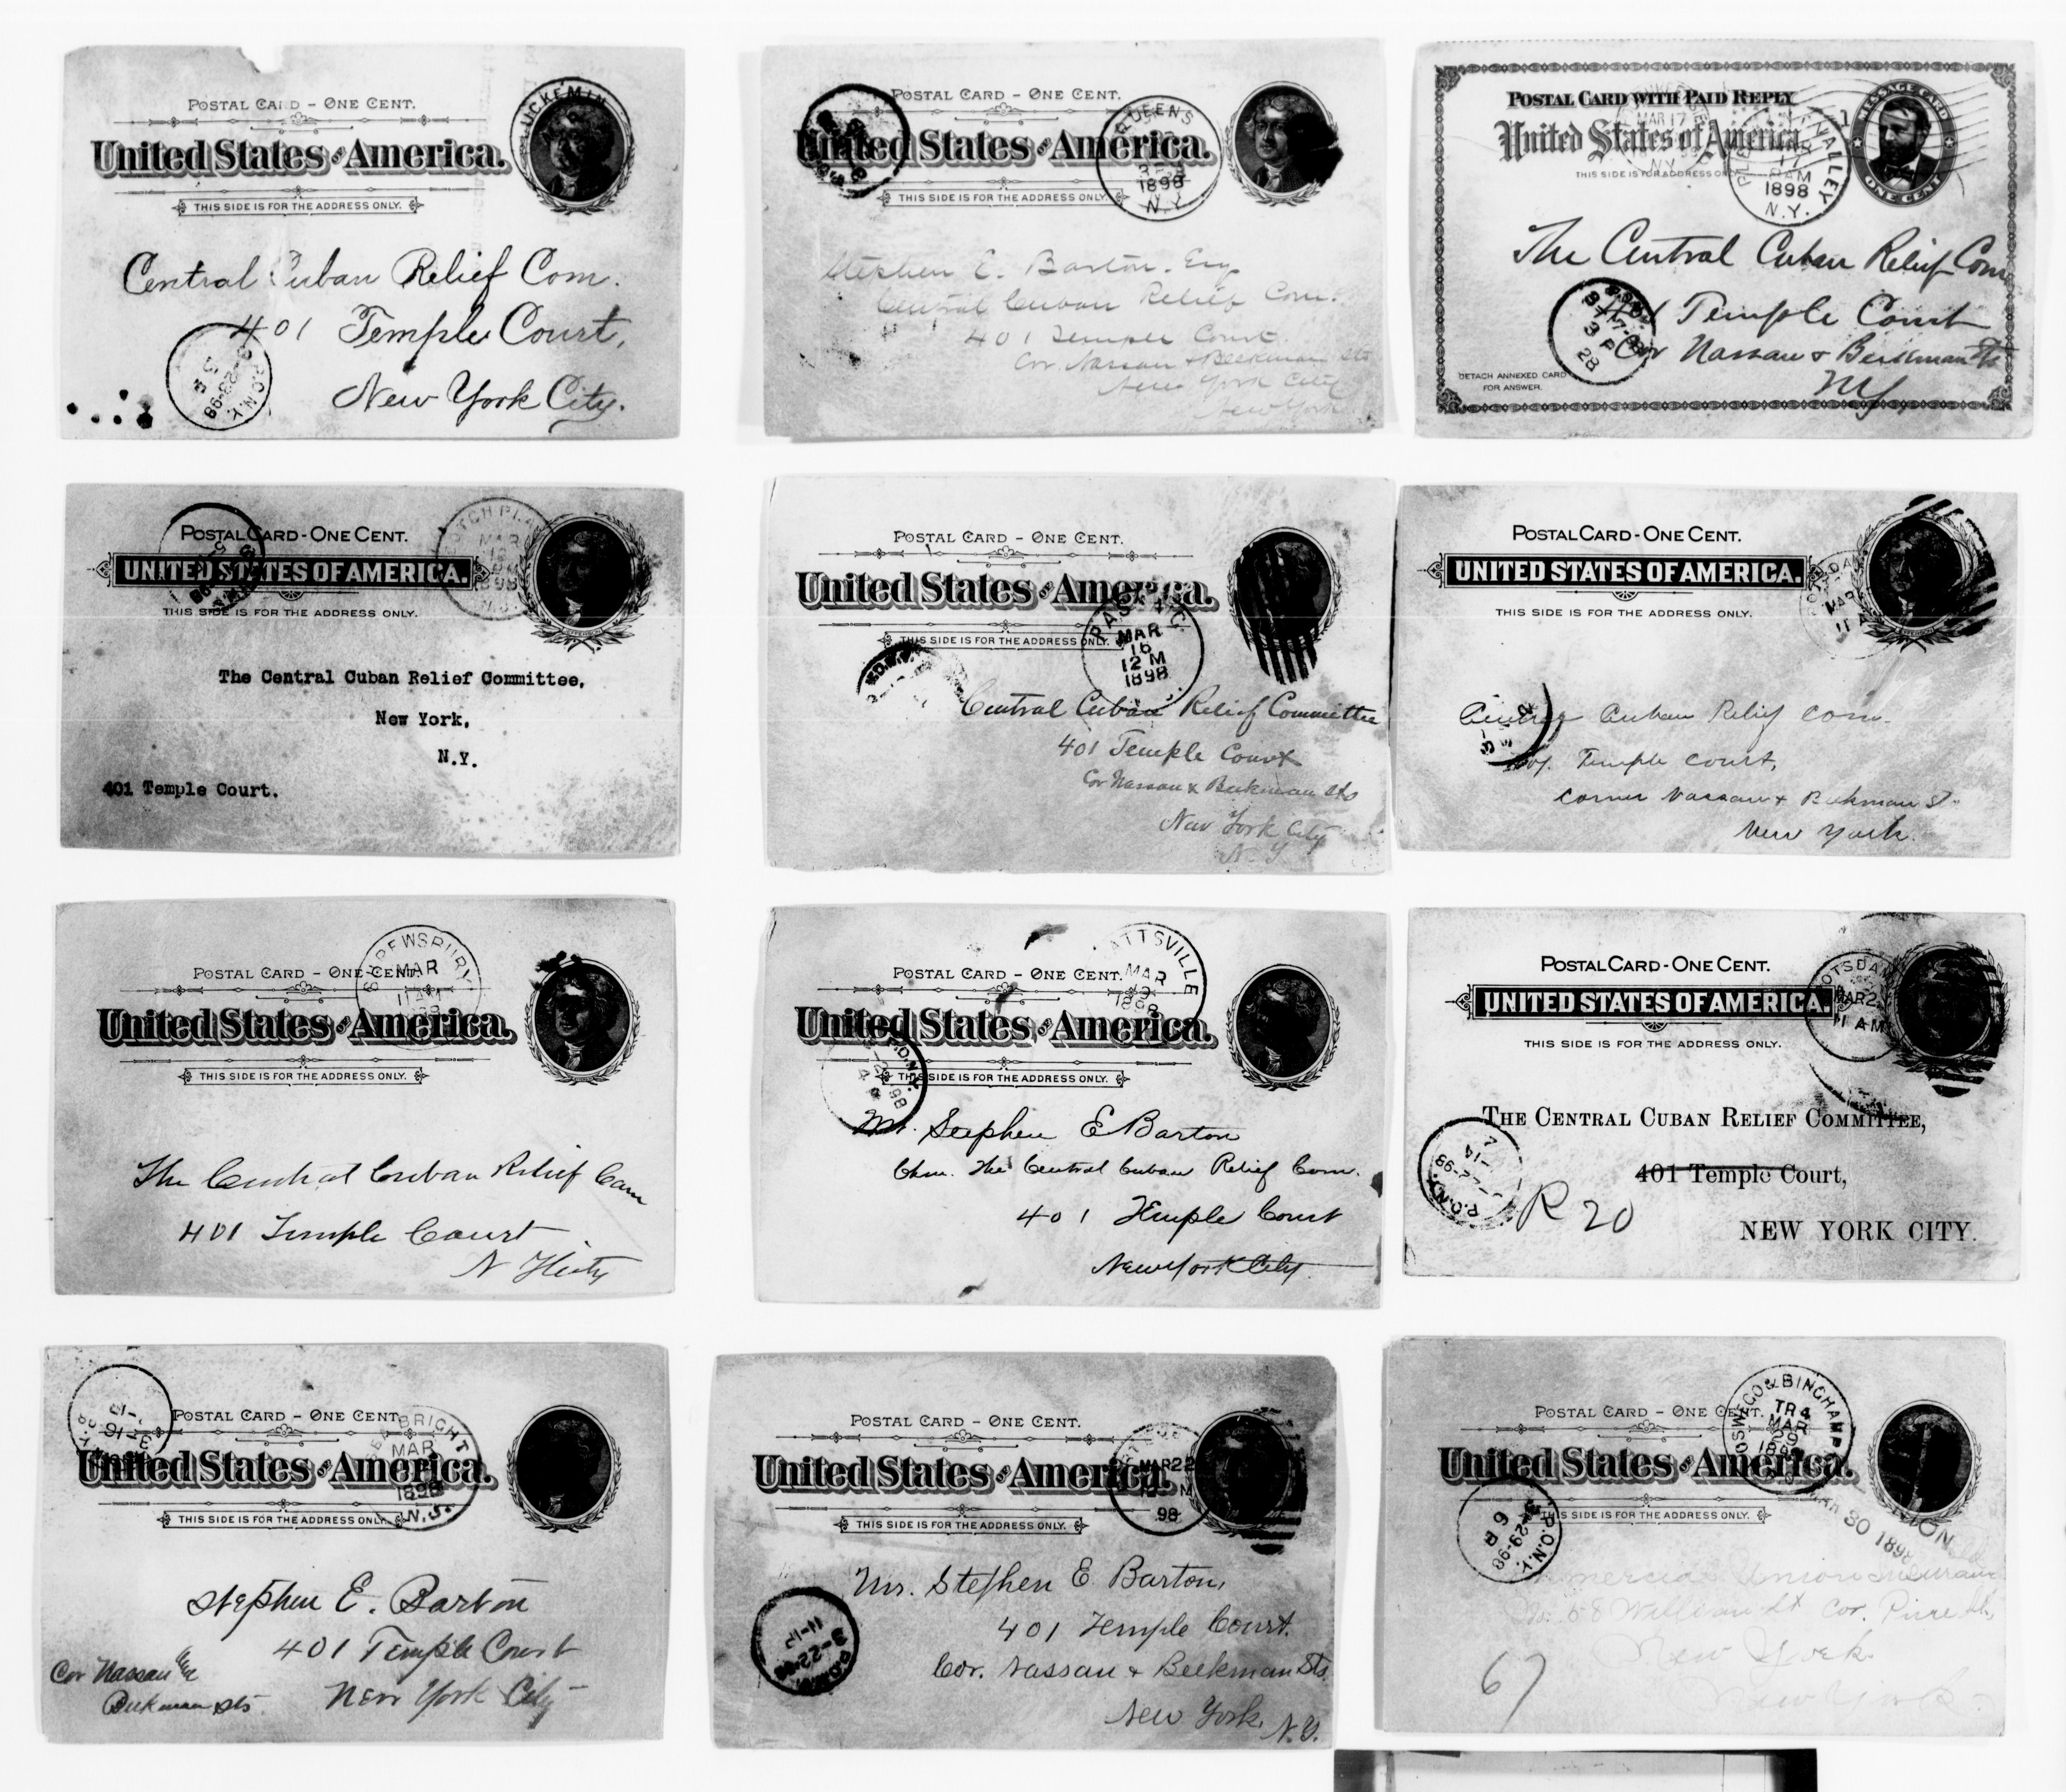 POSTAL CARD - ONE CENT.
United States of America.
THIS SIDE IS FOR THE ADDRESS ONLY.
PLUCKEMIN
Central Cuban Relief Com.
401 Temple Court,
New York City.
P.O.N.Y.
3-23-98
POSTAL CARD - ONE CENT.
United States of America.
THIS SIDE IS FOR THE ADDRESS ONLY.
QUEENS
1898
N.Y.
Stephen E. Barton. Esq
Central Cuban Relief Com.
401 Temple Court.
Cor. Nassau & Beekman Sts
New York City
New York
POSTAL CARD WITH PAID REPLY
United States of America
THIS SIDE IS FOR ADDRESS ONLY
MESSAGE CARD
ONE CENT
MAR 17
N.Y.
VALLEY
17
AM
1898
N.Y.
The Central Cuban Relief Com
401 Temple Court
Cor Nassau & Beekman Sts
NY
3-17-98
3 P
28
DETACH ANNEXED CARD
FOR ANSWER.
POSTAL CARD - ONE CENT.
UNITED STATES OF AMERICA.
THIS SIDE IS FOR THE ADDRESS ONLY.
MAR
N.J.
The Central Cuban Relief Committee,
New York,
N.Y.
401 Temple Court.
POSTAL CARD - ONE CENT.
United States of America.
THIS SIDE IS FOR THE ADDRESS ONLY.
PASSAIC
MAR
16
12 M
1898
Central Cuban Relief Committee
401 Temple Court
Cor Nassau & Beekman Sts
New York City
N.Y
POSTAL CARD - ONE CENT.
UNITED STATES OF AMERICA.
THIS SIDE IS FOR THE ADDRESS ONLY.
MAR
11 A
Central Cuban Relief Com.
401. Temple Court,
Corner Nassau & Beekman St.
New York.
POSTAL CARD - ONE CENT.
United States of America.
THIS SIDE IS FOR THE ADDRESS ONLY.
SHREWSBURY
MAR
11 AM
The Central Cuban Relief Com
401 Temple Court
N Y City
POSTAL CARD - ONE CENT.
United States of America.
THIS SIDE IS FOR THE ADDRESS ONLY.
ATTSVILLE
MAR
1898
P.O.N.Y.
Mr. Stephen E Barton
Chm. The Central Cuban Relief Com.
401 Temple Court
New York City
POSTAL CARD - ONE CENT.
UNITED STATES OF AMERICA.
THIS SIDE IS FOR THE ADDRESS ONLY.
POTSDAM
MAR 2
11 AM
THE CENTRAL CUBAN RELIEF COMMITTEE,
401 Temple Court,
R 20
NEW YORK CITY.
P.O.N.Y.
POSTAL CARD - ONE CENT.
United States of America.
THIS SIDE IS FOR THE ADDRESS ONLY.
BRIGHT
MAR
1898
N.J.
Stephen E. Barton
401 Temple Court
Cor Nassau &
Beekman Sts.
New York City
POSTAL CARD - ONE CENT.
United States of America.
THIS SIDE IS FOR THE ADDRESS ONLY.
MAR 22
98
Mr. Stephen E Barton,
401 Temple Court.
Cor. Nassau & Beekman Sts.
New York. N.Y.
3-22-98
POSTAL CARD - ONE CENT.
United States of America.
THIS SIDE IS FOR THE ADDRESS ONLY.
OSWEGO & BINGHAMP
TR 4
MAR
P.O.N.Y.
3-29-98
6 P
MAR 30 1898
Union Insurance
No. 58 William St Cor. Pine St.
New York
New York
67